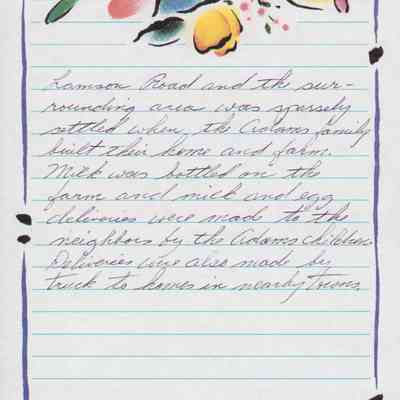 Lamson Road and the sur-
rounding area was sparsely
settled when, the Adams family
built their home and farm.
Milk was bottled on the
farm and milk and egg
deliveries were made to the
neighbors by the Adams children.
Deliveries were also made by
truck to homes in nearby towns.